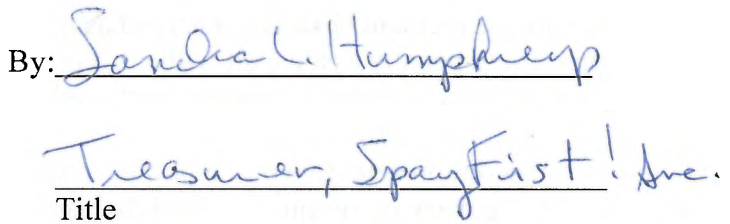 By: Sandra L. Humphreys
Treasurer, SpayFirst! Inc.
Title